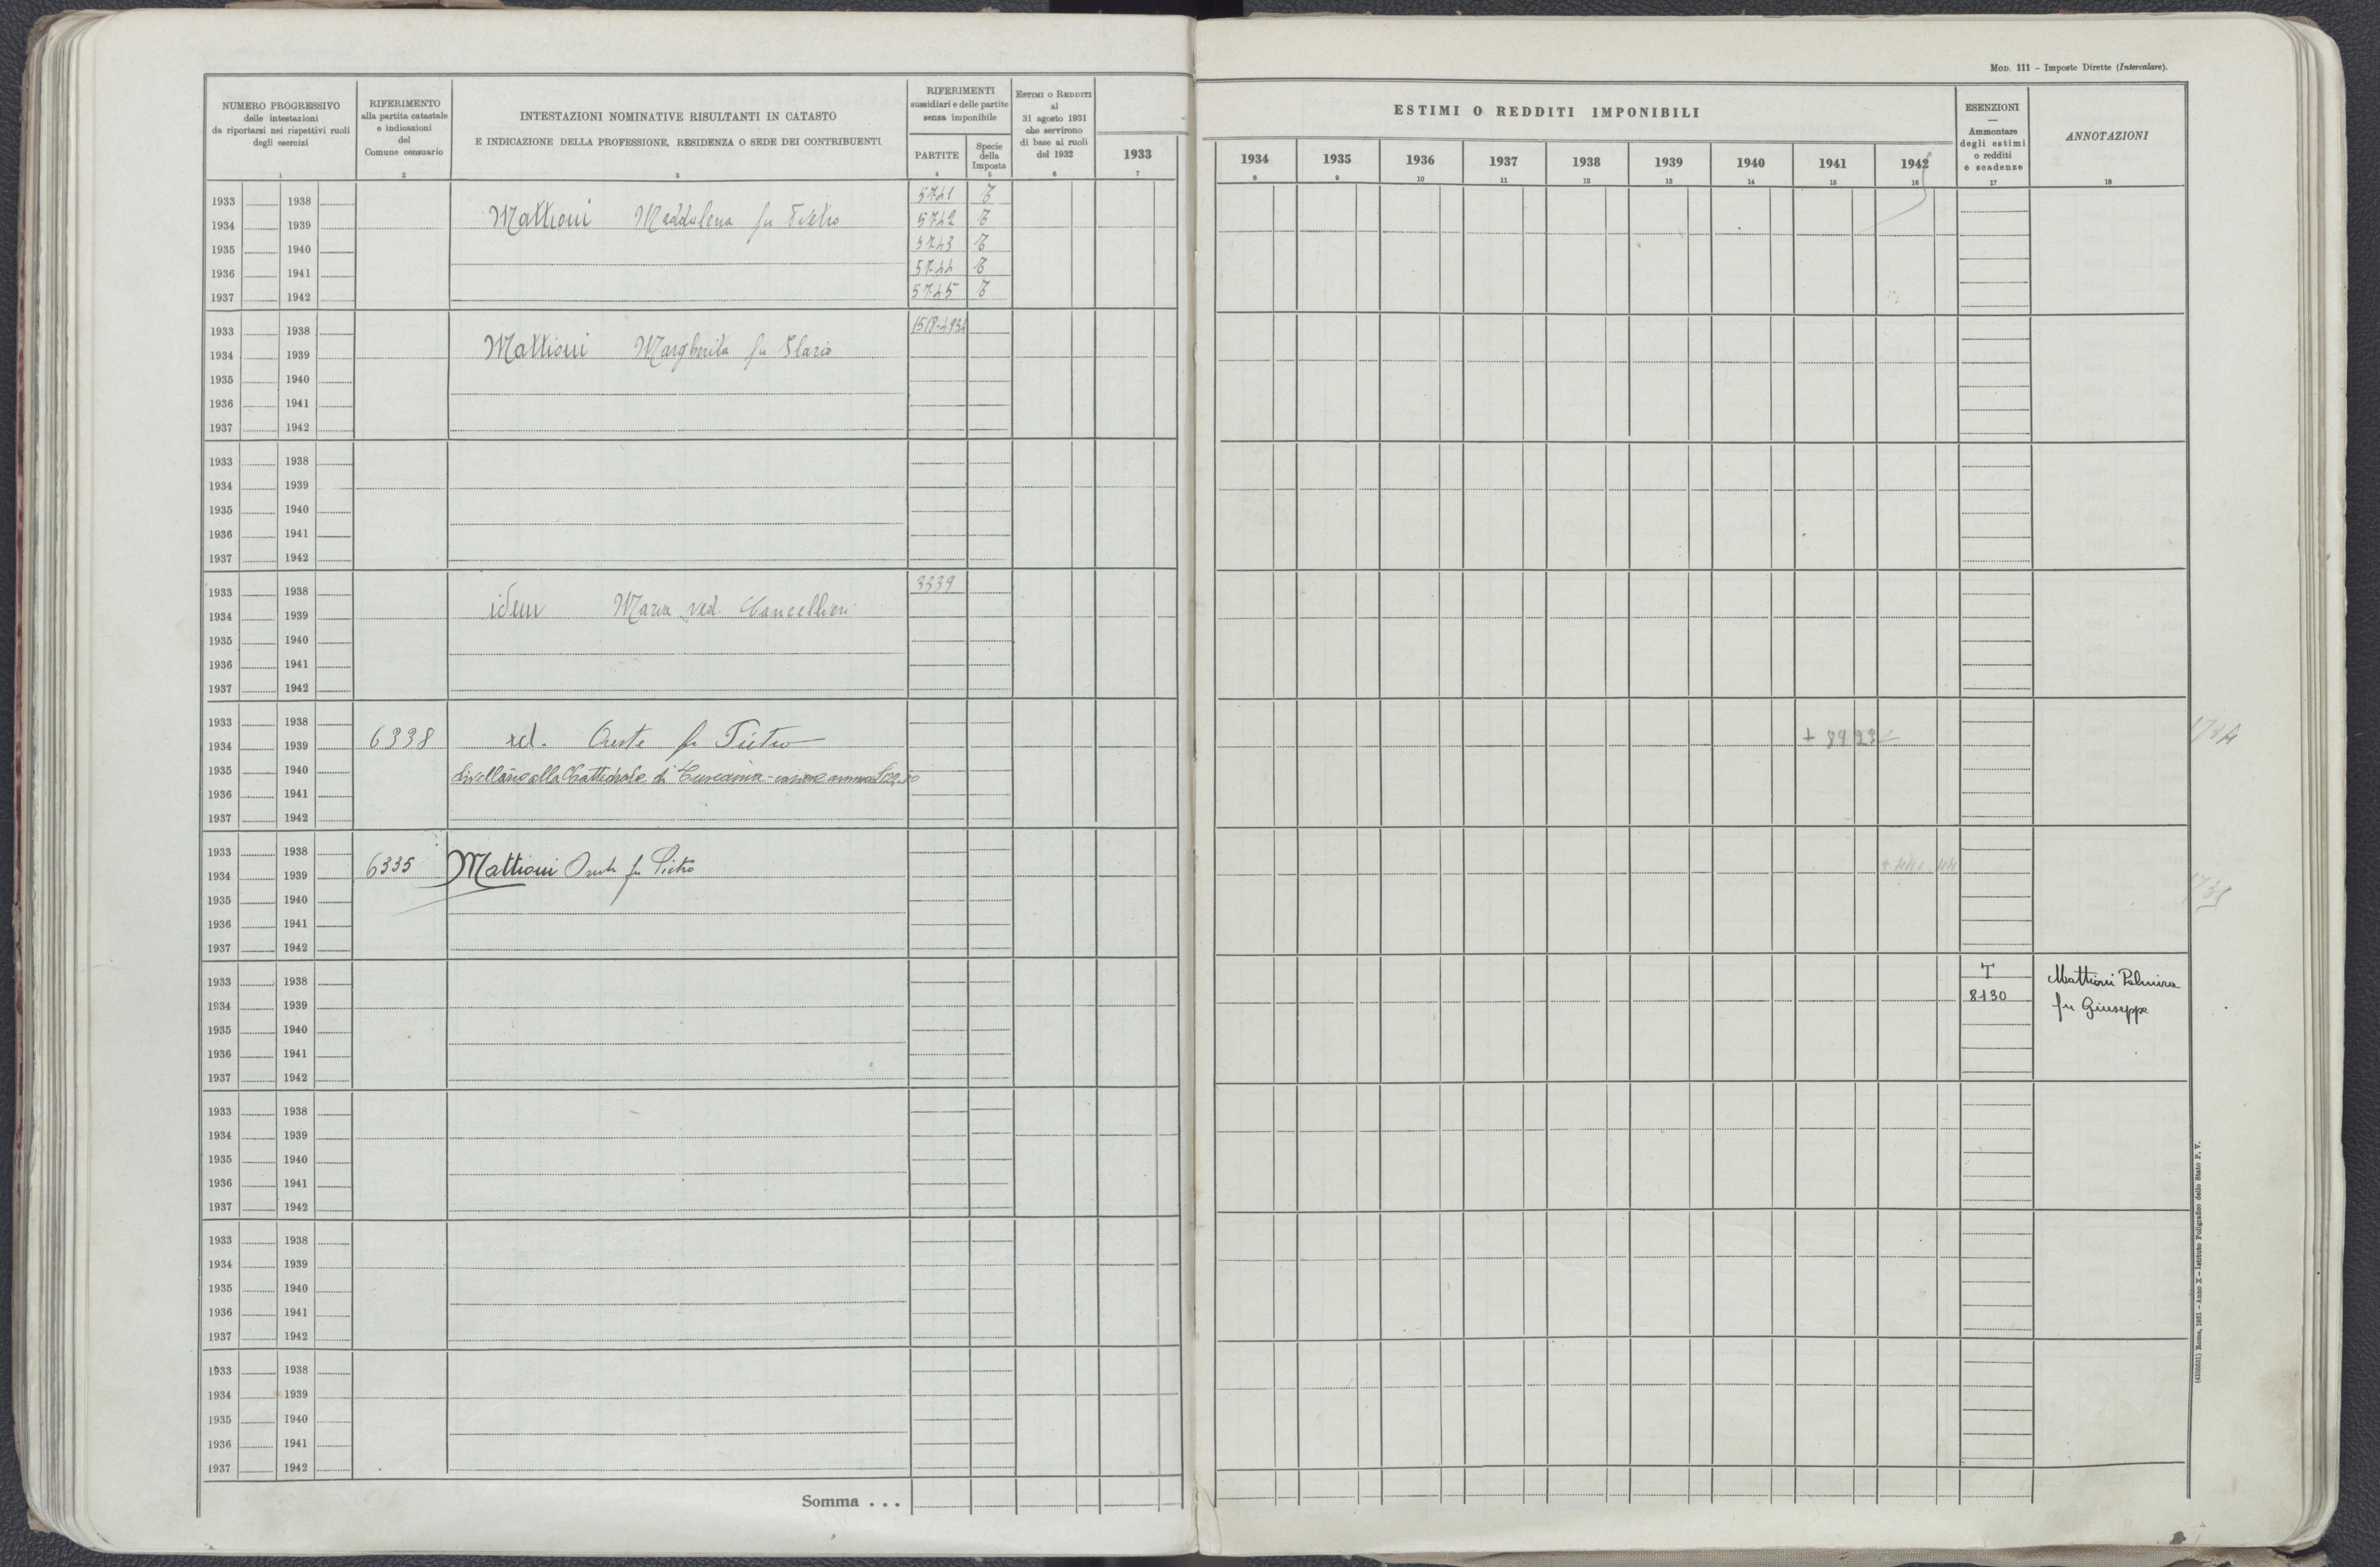 MOD. 111 – Imposte Dirette (Intercalare).
NUMERO PROGRESSIVO
delle intestazioni
da riportarsi nei rispettivi ruoli
degli esercizi
1
RIFERIMENTO
alla partita catastale
e indicazioni
del
Comune censuario
2
INTESTAZIONI NOMINATIVE RISULTANTI IN CATASTO
E INDICAZIONE DELLA PROFESSIONE, RESIDENZA O SEDE DEI CONTRIBUENTI
3
RIFERIMENTI
sussidiari e delle partite
senza imponibile
PARTITE
4
Specie
della
Imposta
5
ESTIMI O REDDITI
al
31 agosto 1931
che servirono
di base ai ruoli
del 1932
6
1933
7
ESTIMI O REDDITI IMPONIBILI
1934 1935 1936 1937 1938 1939 1940 1941 1942
8 9 10 11 12 13 14 15 16
ESENZIONI
—
Ammontare
degli estimi
o redditi
e scadenze
17
ANNOTAZIONI
18
1933 1938 5741 T
1934 1939 Mattioni Maddalena fu Pietro 5742 T
1935 1940 5743 T
1936 1941 5744 T
1937 1942 5745 T
1933 1938 1518-4934
1934 1939 Mattioni Margherita fu Ilario
1935 1940
1936 1941
1937 1942
1933 1938
1934 1939
1935 1940
1936 1941
1937 1942
1933 1938 3339
1934 1939 idem Maria ved. Cancellieri
1935 1940
1936 1941
1937 1942
1933 1938
1934 1939 6338 id. Oreste fu Pietro + 89 23
1935 1940 livellario alla Cattedrale di Tuscania - canone annuo
1936 1941
1937 1942
1933 1938
1934 1939 6335 Mattioni Oreste fu Pietro
1935 1940
1936 1941
1937 1942
1933 1938 T Mattioni Palmira
1934 1939 8130 fu Giuseppe
1935 1940
1936 1941
1937 1942
1933 1938
1934 1939
1935 1940
1936 1941
1937 1942
1933 1938
1934 1939
1935 1940
1936 1941
1937 1942
1933 1938
1934 1939
1935 1940
1936 1941
1937 1942
Somma . . .
(4103831) Roma, 1931 – Anno X – Istituto Poligrafico dello Stato P. V.